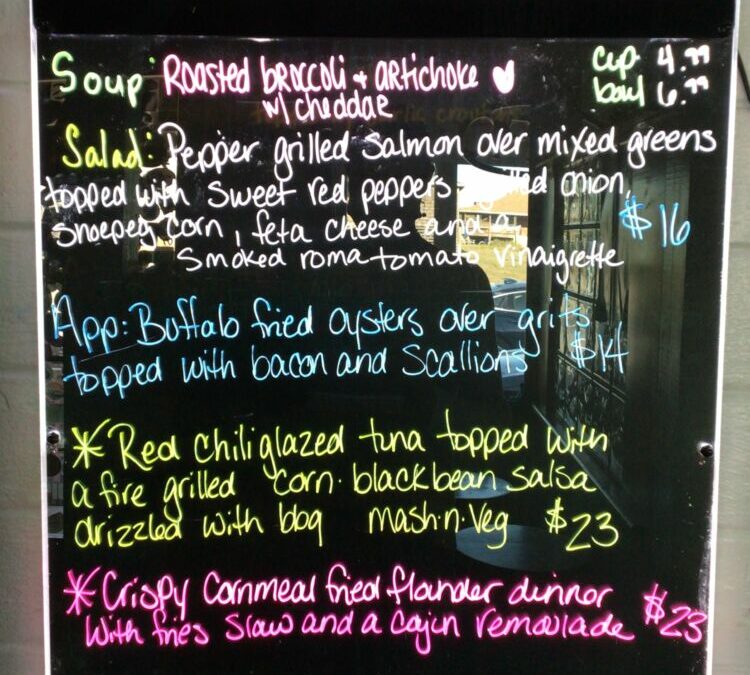 Soup: Roasted broccoli + artichoke
w/ cheddar
cup 4.99
bowl 6.99
Salad: Pepper grilled salmon over mixed greens
topped with sweet red peppers grilled onion,
shoepeg corn, feta cheese and a
smoked roma tomato vinaigrette
$16
App: Buffalo fried oysters over grits
topped with bacon and scallions $14
*Red chili glazed tuna topped with
a fire grilled corn. blackbean salsa
drizzled with bbq mash.n.veg $23
*Crispy cornmeal fried flounder dinnor
with fries slaw and a cajun remoulade $23